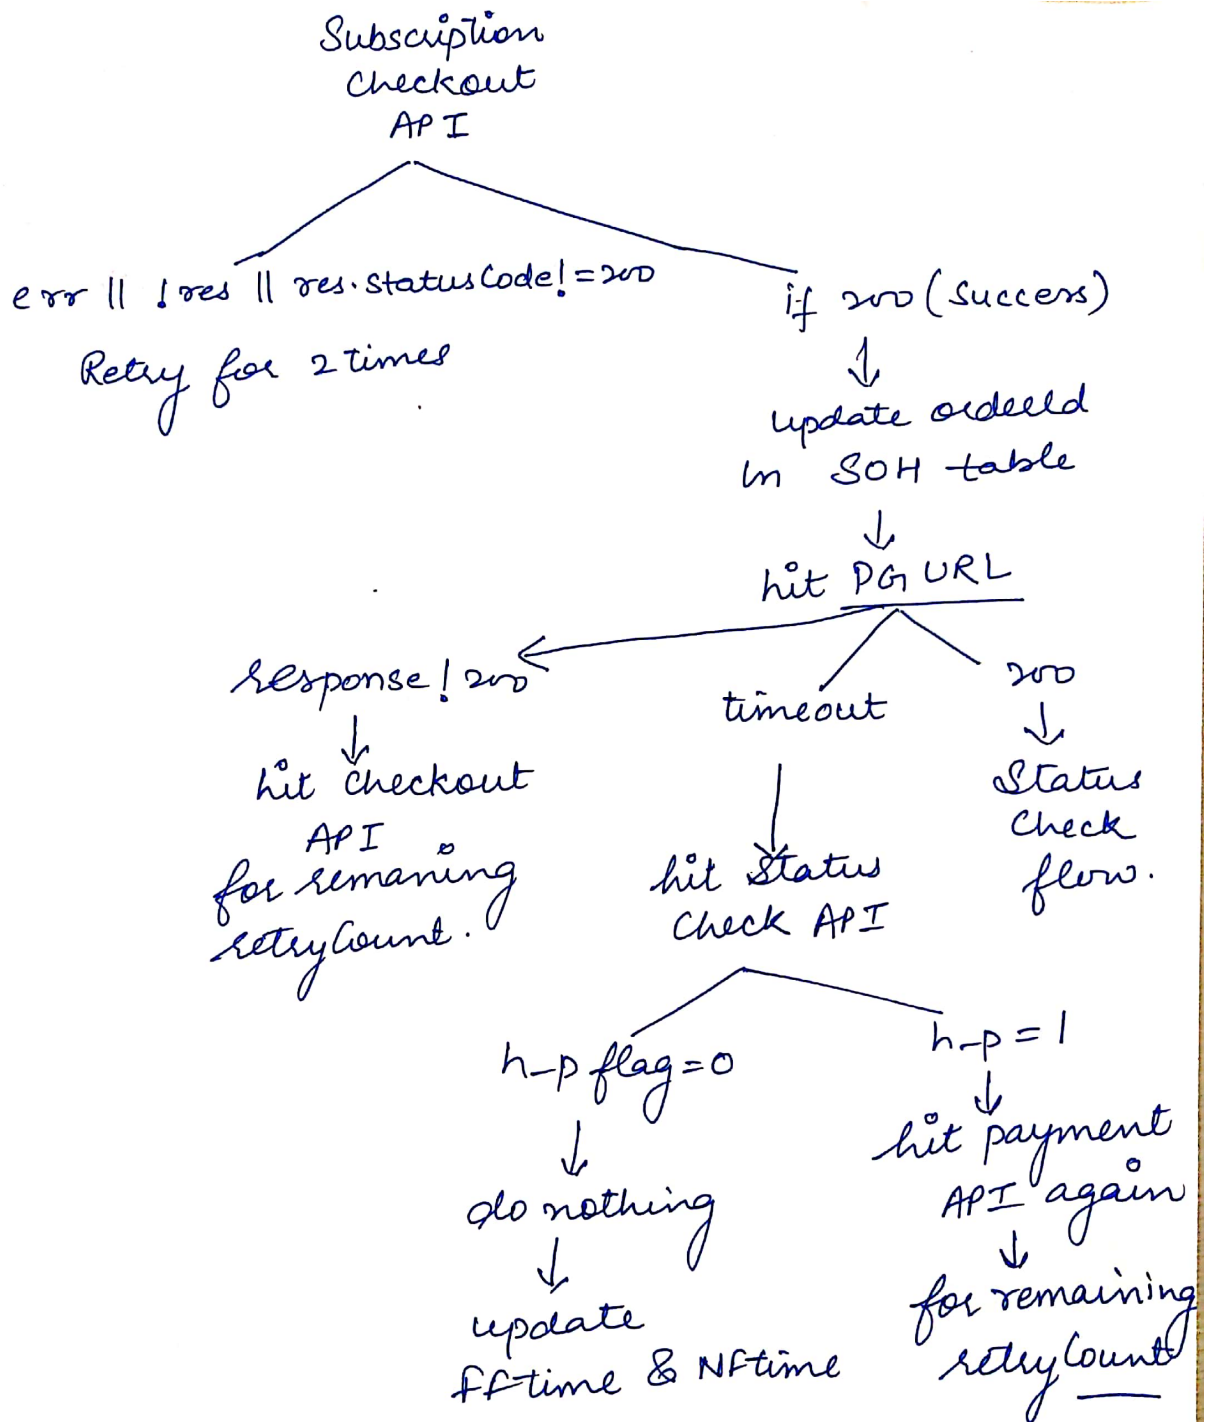 Subscription
Checkout
API
err || !res || res.statusCode!=200
Retry for 2 times
if 200 (Success)
update orderId
in SOH table
hit PG URL
response! 200
hit checkout
API
for remaning
retryCount.
timeout
hit Status
Check API
200
Status
Check
flow.
h-p flag=0
do nothing
update
ff time & NF time
h-p = 1
hit payment
API again
for remaining
retryCount